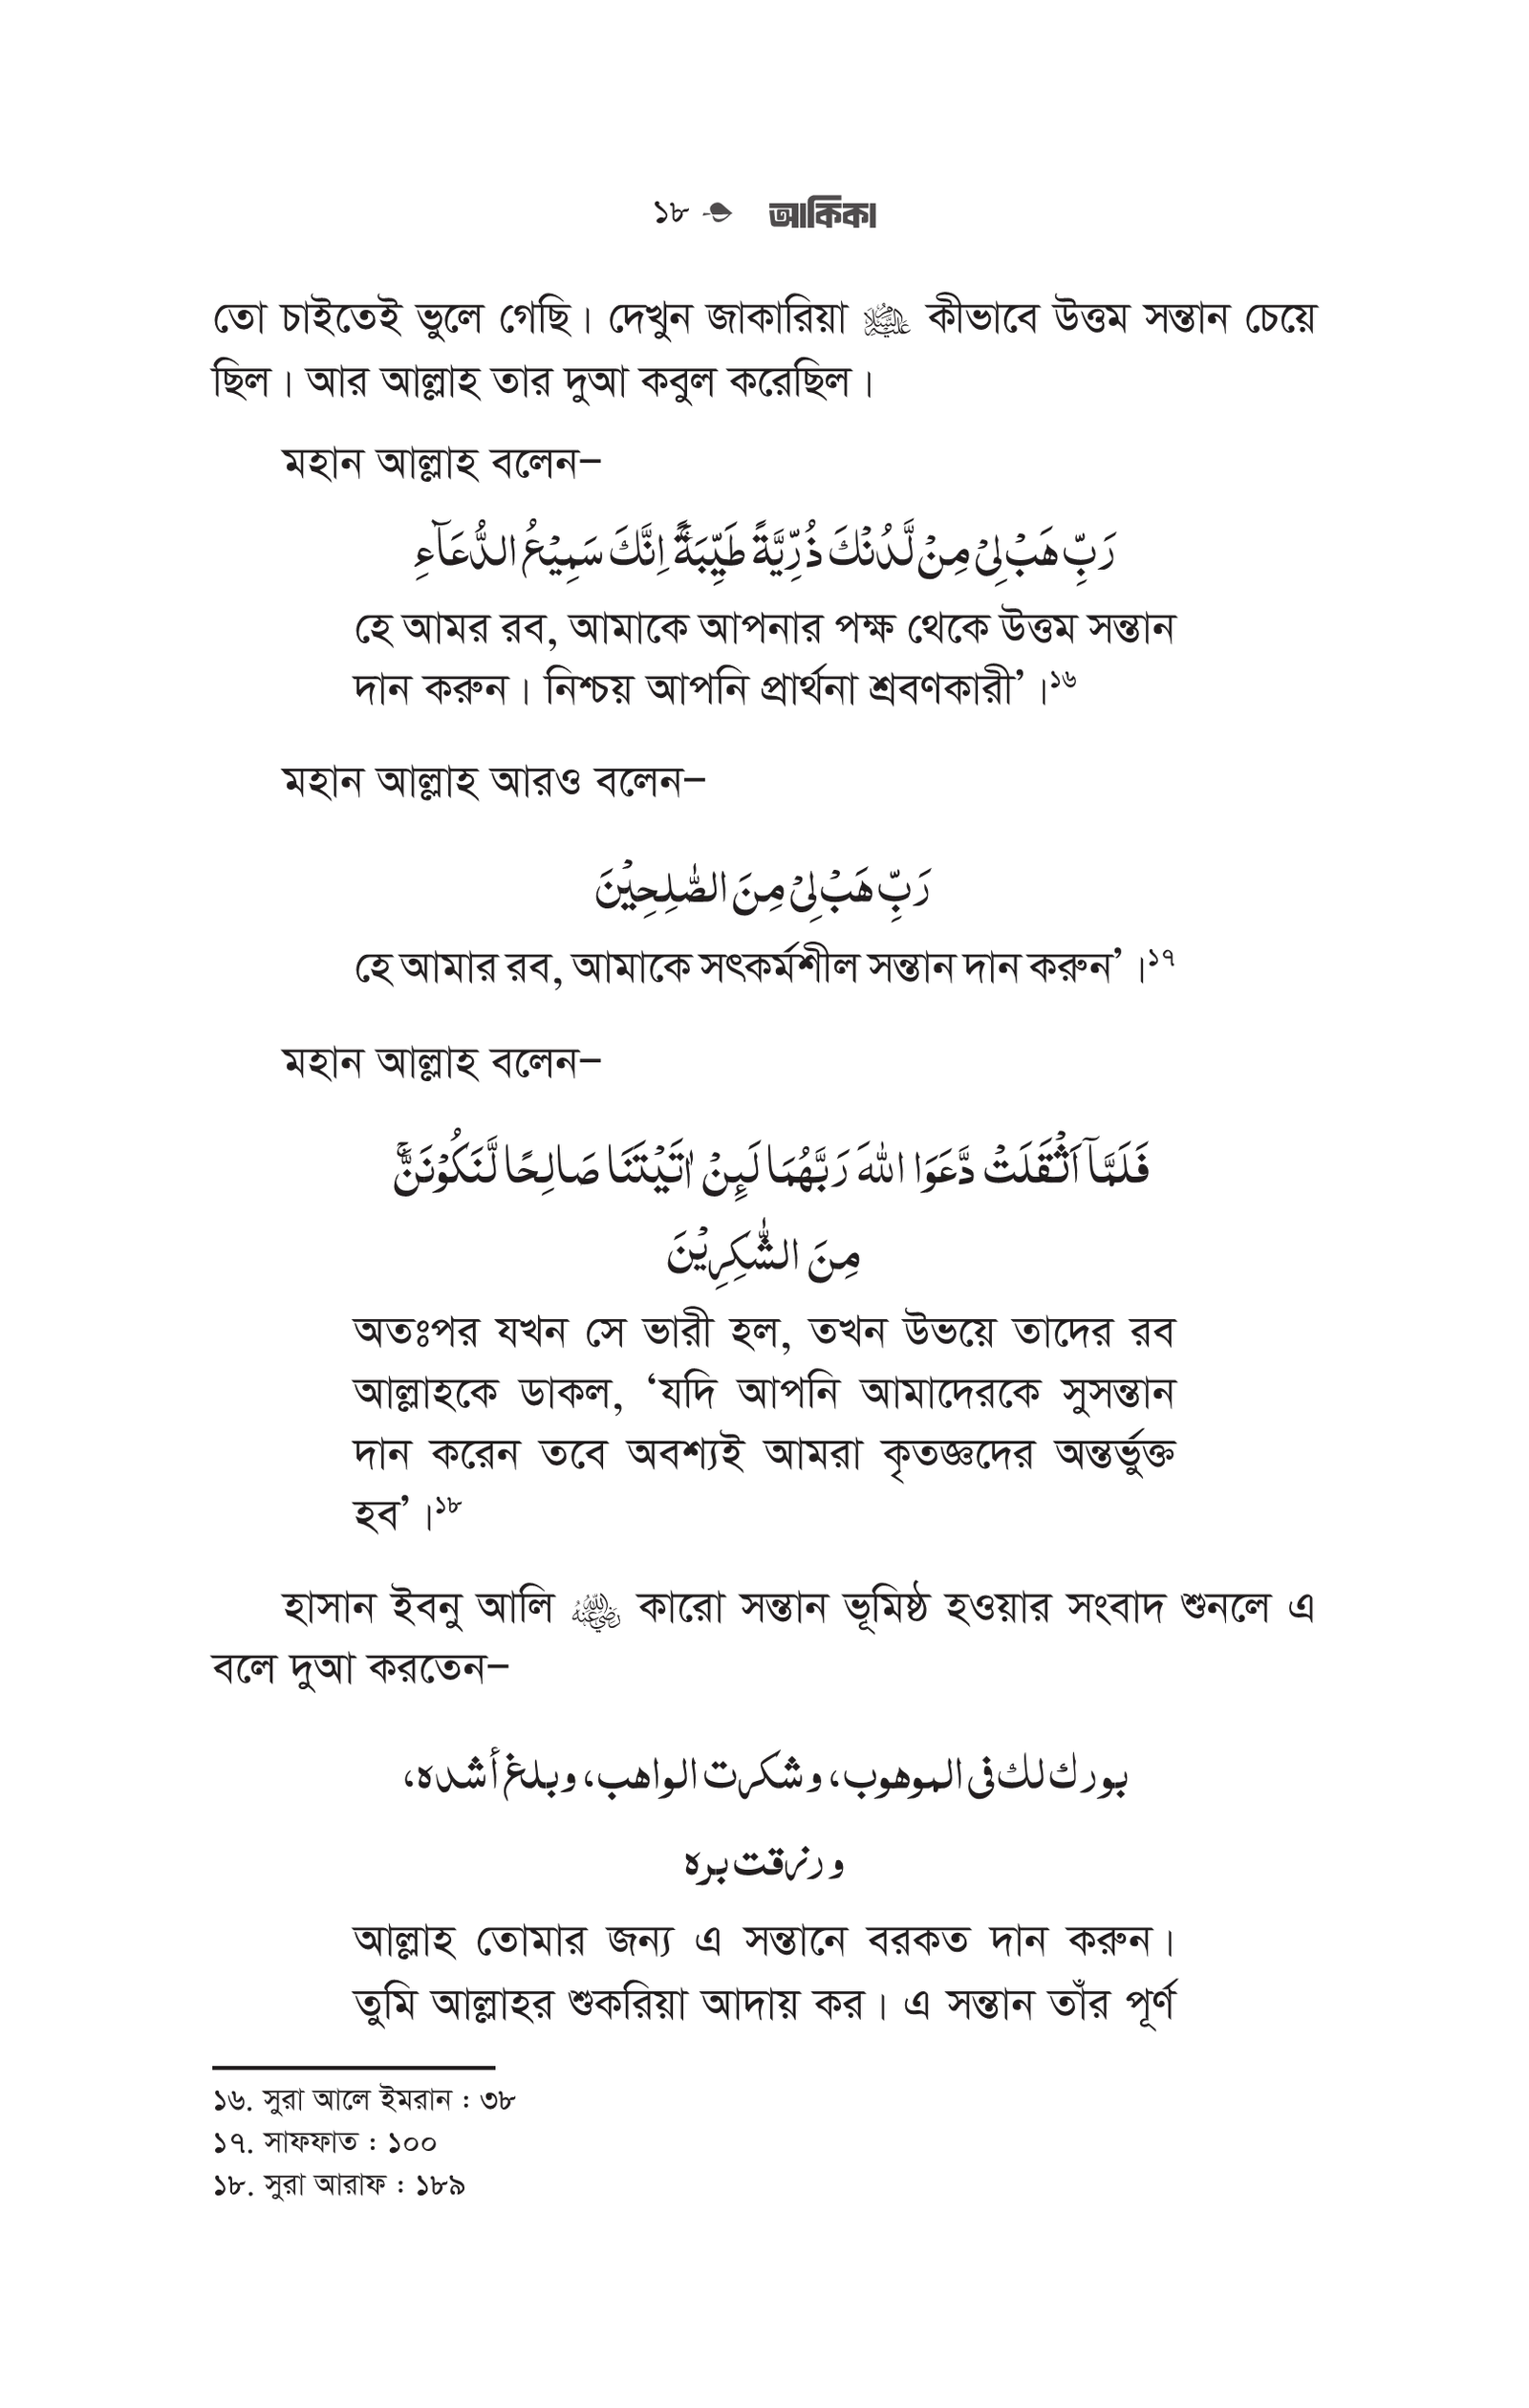 ১৮ আকিকা
তো চাইতেই ভুলে গেছি। দেখুন জাকারিয়া عليه السلام কীভাবে উত্তম সন্তান চেয়ে
ছিল। আর আল্লাহ তার দুআ কবুল করেছিল।
মহান আল্লাহ বলেন–
رَبِّ هَبْ لِیْ مِنْ لَّدُنْكَ ذُرِّیَّةً طَیِّبَةً ۚ اِنَّكَ سَمِیْعُ الدُّعَآءِ
হে আমর রব, আমাকে আপনার পক্ষ থেকে উত্তম সন্তান
দান করুন। নিশ্চয় আপনি প্রার্থনা শ্রবণকারী’।১৬
মহান আল্লাহ আরও বলেন–
رَبِّ هَبْ لِیْ مِنَ الصّٰلِحِیْنَ
হে আমার রব, আমাকে সৎকর্মশীল সন্তান দান করুন’।১৭
মহান আল্লাহ বলেন–
فَلَمَّاۤ اَثْقَلَتْ دَّعَوَا اللّٰهَ رَبَّهُمَا لَىِٕنْ اٰتَیْتَنَا صَالِحًا لَّنَكُوْنَنَّ
مِنَ الشّٰكِرِیْنَ
অতঃপর যখন সে ভারী হল, তখন উভয়ে তাদের রব
আল্লাহকে ডাকল, ‘যদি আপনি আমাদেরকে সুসন্তান
দান করেন তবে অবশ্যই আমরা কৃতজ্ঞদের অন্তর্ভুক্ত
হব’।১৮
হাসান ইবনু আলি رضي الله عنه কারো সন্তান ভূমিষ্ঠ হওয়ার সংবাদ শুনলে এ
বলে দুআ করতেন–
بورك لك فی الموهوب، وشكرت الواهب، وبلغ أشده،
ورزقت بره
আল্লাহ তোমার জন্য এ সন্তানে বরকত দান করুন।
তুমি আল্লাহর শুকরিয়া আদায় কর। এ সন্তান তাঁর পূর্ণ
১৬. সুরা আলে ইমরান : ৩৮
১৭. সাফফাত : ১০০
১৮. সুরা আরাফ : ১৮৯